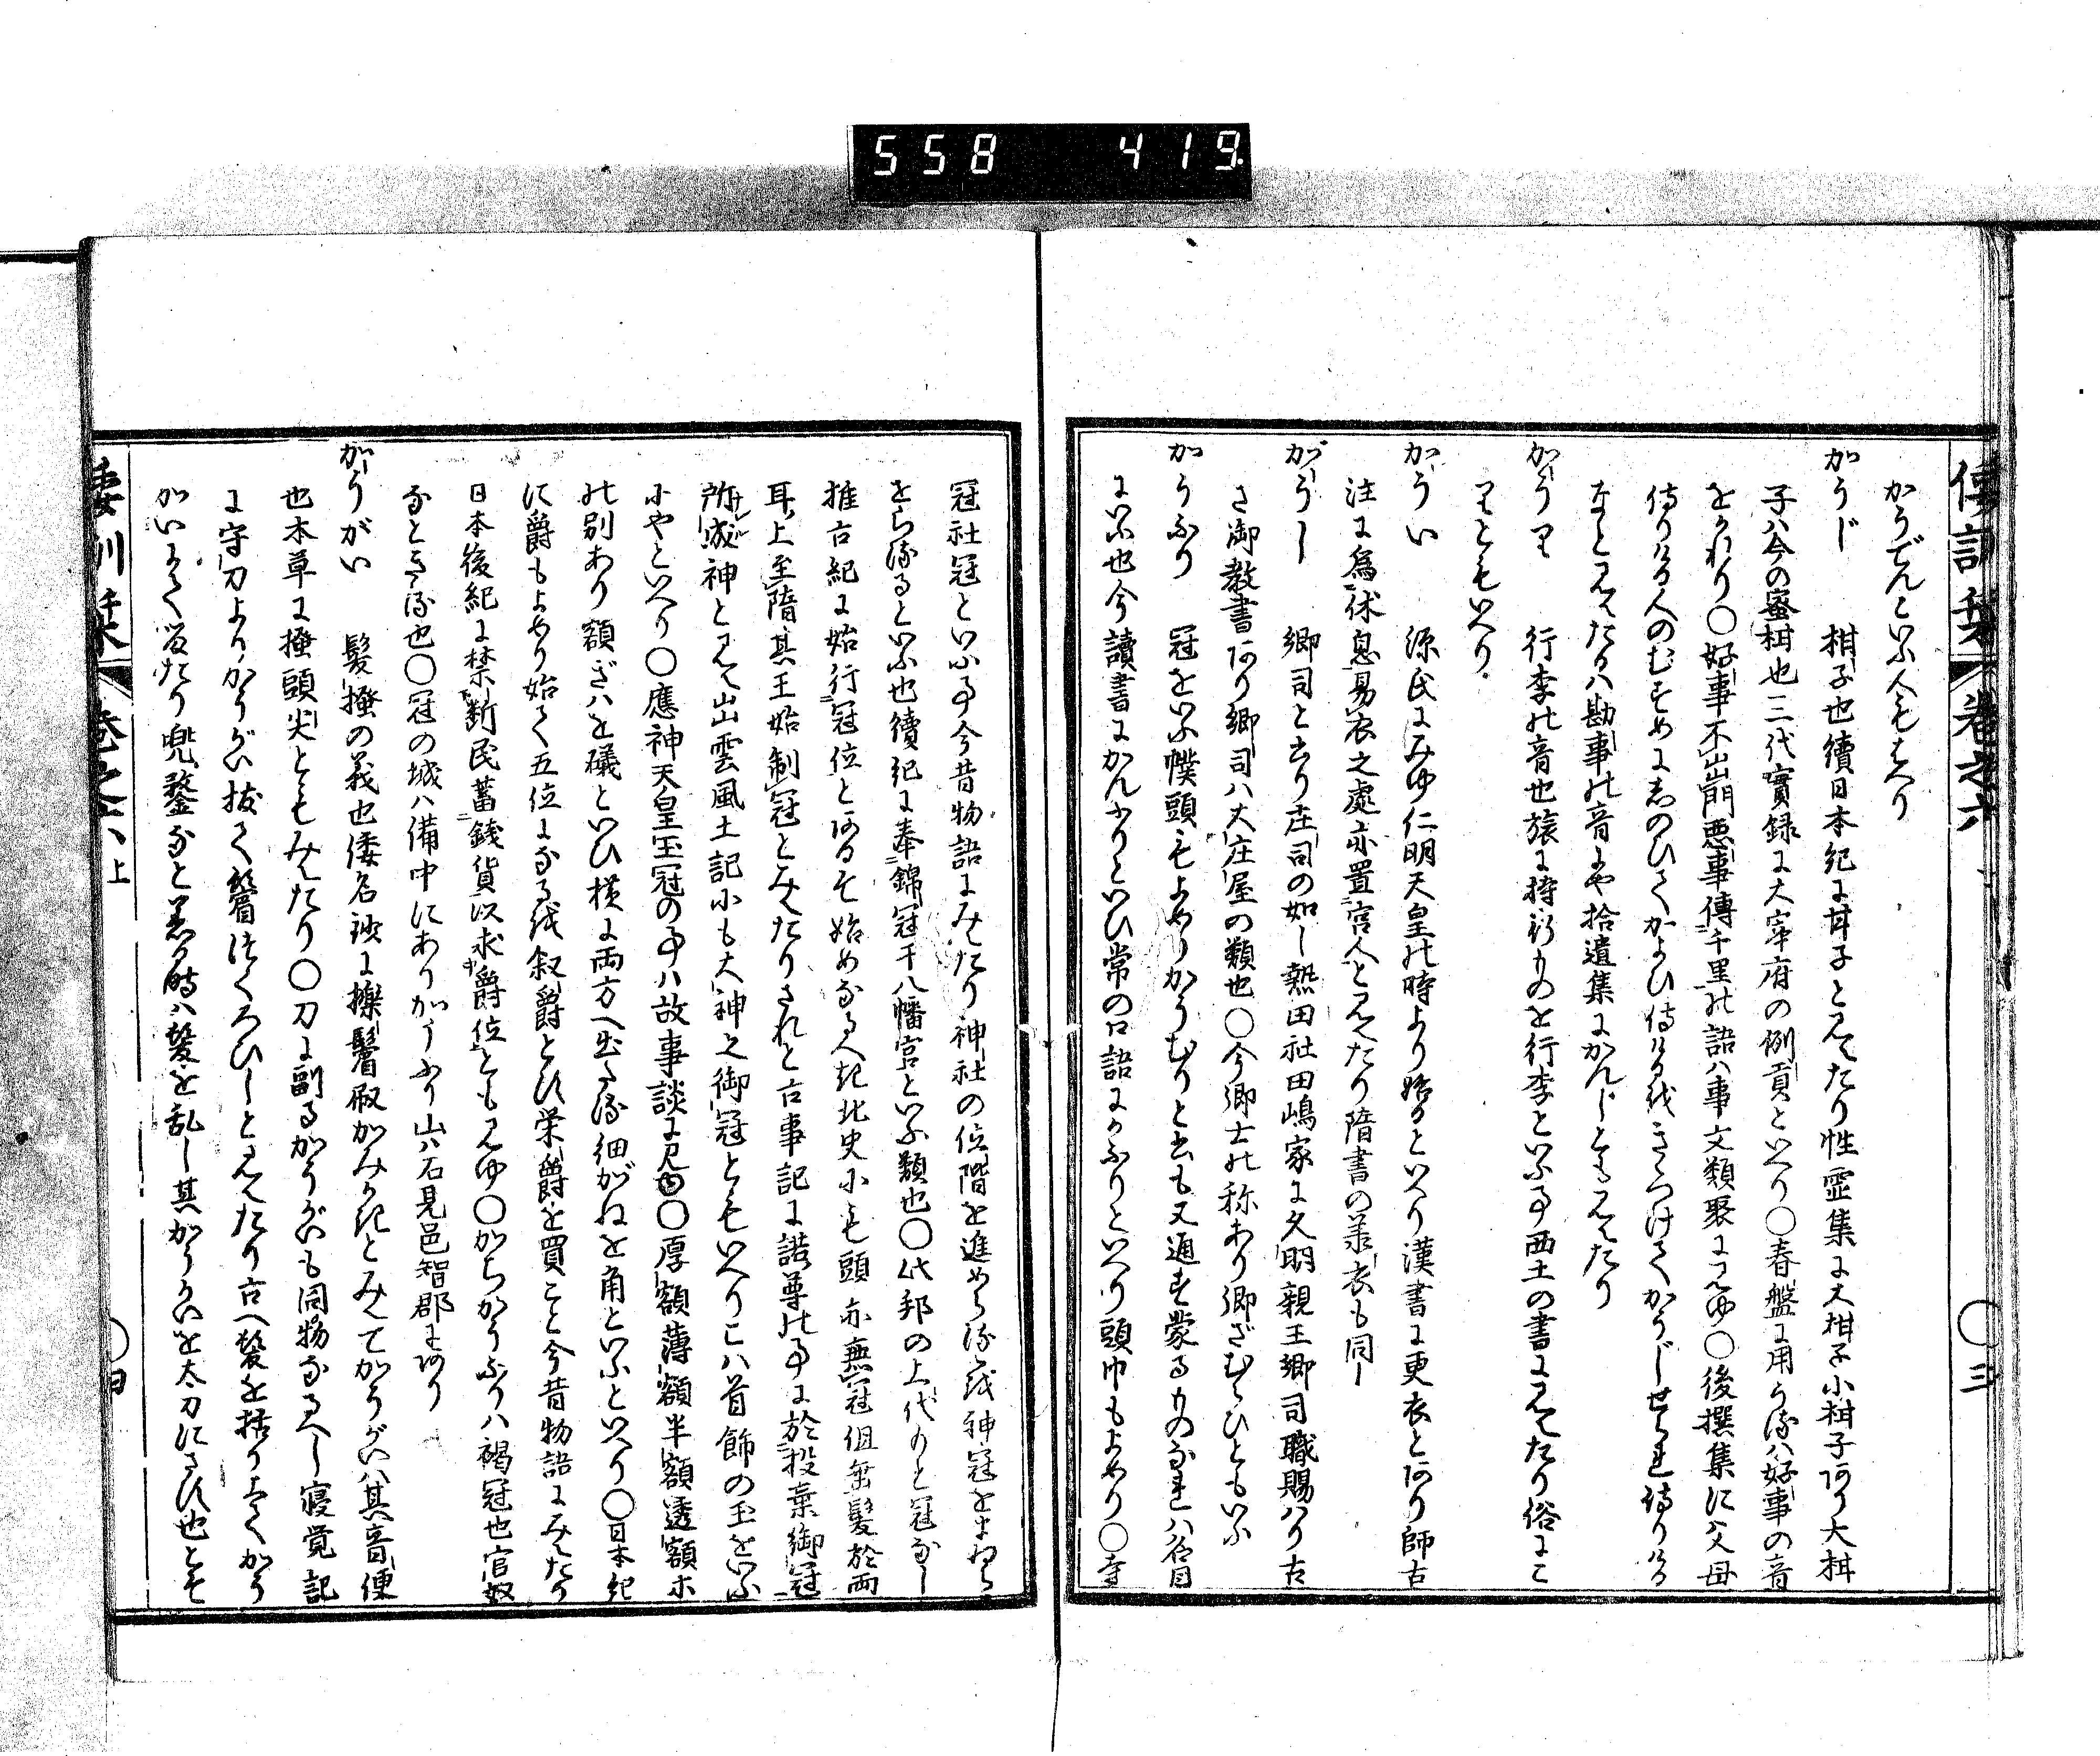 558 419
倭訓栞 巻之六 〇三
かうでんといふ人もはへり
かうじ 柑子也續日本紀に甘子と見えたり性霊集に大柑子小柑子あり大柑
子ハ今の蜜柑也三代實録に大宰府の例貢といへり〇春盤に用うるハ好事の音
をかれり〇好事不出門悪事傳千里の語ハ事文類聚に見ゆ〇後撰集に父母
侍りける人のむすめにしのひてかよひ侍けるをきゝつけてかうじせられ侍りける
なと見えたるハ勘事の音にや拾遺集にかんじとも見えたり
かうり 行李の音也旅に持行ものを行李といふ事西土の書に見えたり俗にこ
りともいへり
かうい 源氏にみゆ仁明天皇の時より始るといへり漢書に更衣とあり師古
注に為休息易衣之處亦置宮人と見えたり隋書の義衣も同し
がうし 郷司と書り庄司の如し熱田社田嶋家に久明親王郷司職賜ハり古
き御教書あり郷司ハ大庄屋の類也〇今郷士の称あり郷ざむらひともいふ
かうふり 冠をいふ幞頭もよめりかうむりと書も又通す蒙るものなれハ名目
にいふ也今讀書にかんふりといひ常の口語にかふりといへり頭巾もよめり〇寺
冠社冠といふ事今昔物語にみえたり神社の位階を進めらるを神冠をまねら
せらるるといふ也續紀に奉錦冠于八幡宮といふ類也〇此邦の上代もと冠なし
推古紀に始行冠位とあるそ始めなるへき北史にも頭亦無冠但垂髪於両
耳上至隋其王始制冠とみえたりされと古事記に諾尊の事に於投棄御冠
所成神と見え出雲風土記にも大神之御冠ともいへりこハ首飾の玉をいふ
にやといへり〇應神天皇玉冠の事ハ故事談に見ゆ〇厚額薄額半額透額ホ
の別あり額ぎハを礒といひ横に両方へ出たる細がねを角といふといへり〇日本紀
に爵もよめり始て五位になるを叙爵とす栄爵を買こと今昔物語にみえたり
日本後紀に禁断民蓄銭貨以求爵位とも見ゆ〇かちかうふりハ褐冠也官奴
なときる也〇冠の城ハ備中にありかうふり山ハ石見邑智郡にあり
かうがい 髪掻の義也倭名鈔に擽鬢㕞かみかきとみえてかうがいハ其音便
也本草に掻頭尖ともみえたり〇刀に副るかうがいも同物なるへし寝覚記
に守刀よりかうがい抜て鬢つくろひしと見えたり古へ髪を括りえてかう
がいにて留たり兜鍪なと着る時ハ髪を乱し其かうがいを太刀にさす也とそ
倭訓栞 巻之六上 〇四